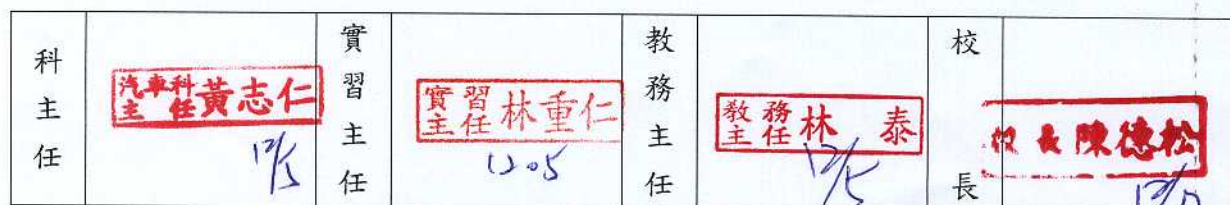 科主任
汽車科主任 黃志仁
12/5
實習主任
實習主任 林重仁
12.05
教務主任
教務主任 林 泰
12/5
校長
校長 陳德松